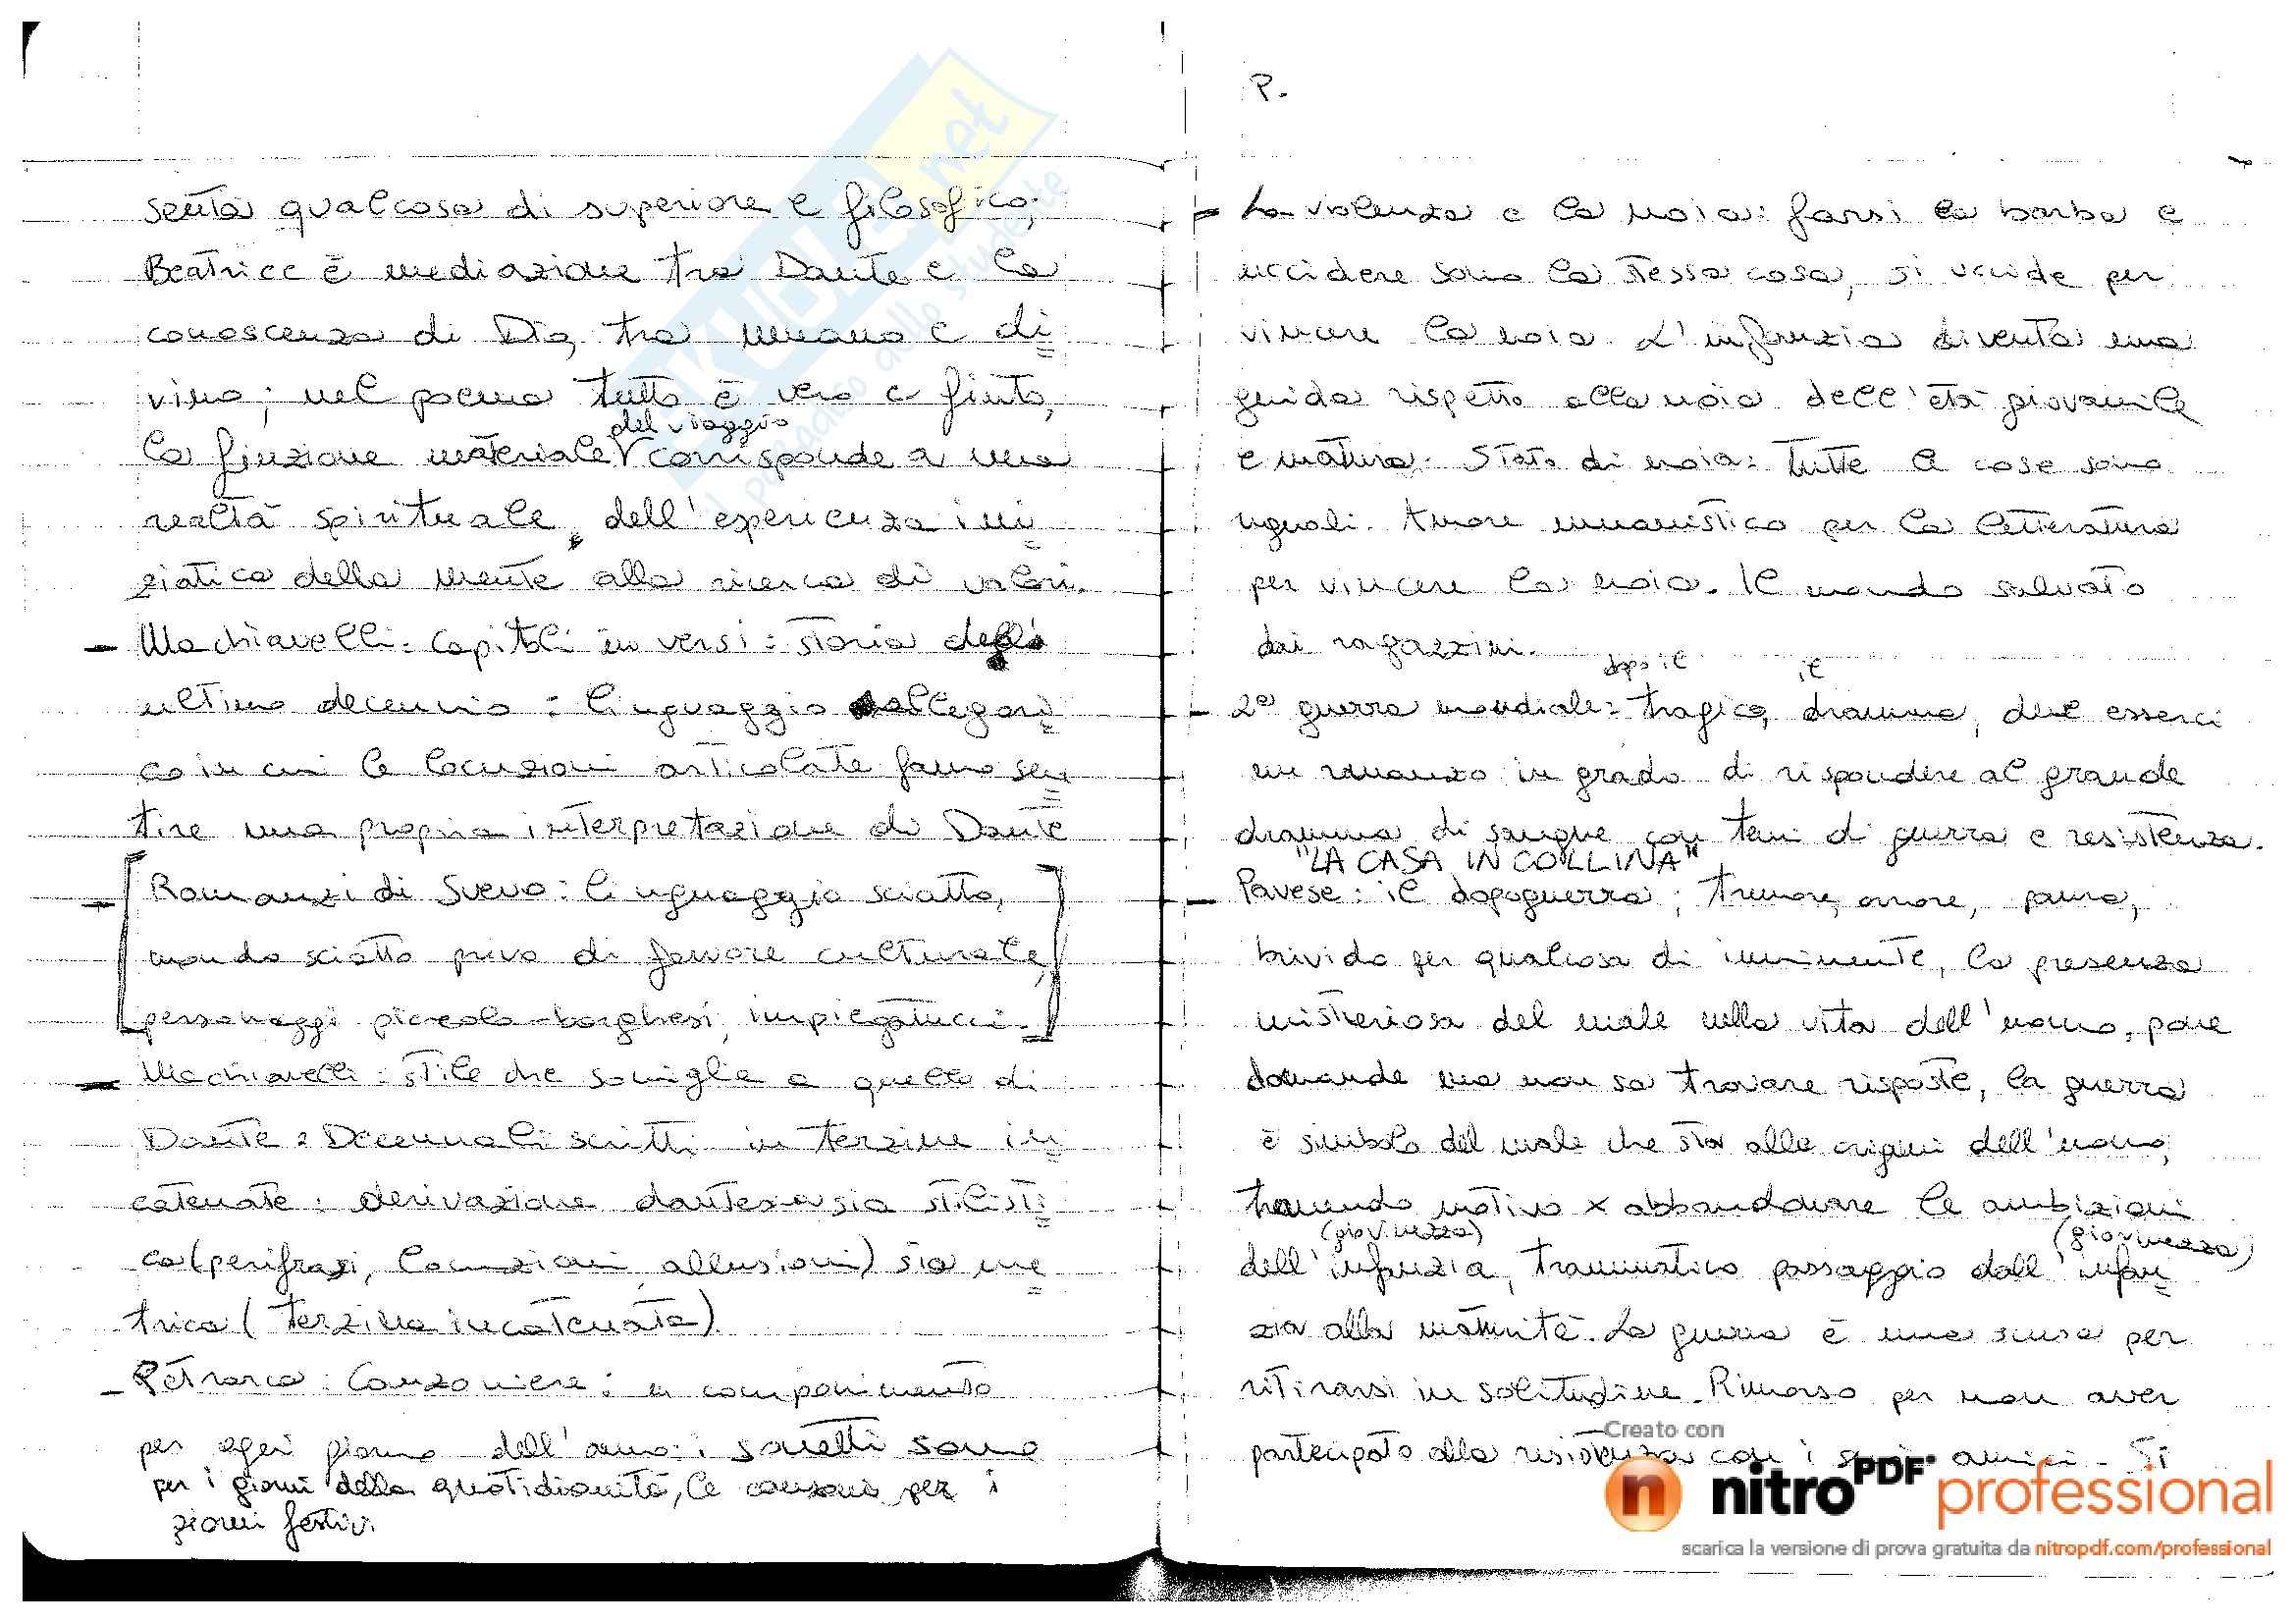 senta qualcosa di superiore e filosofico;
Beatrice è mediazione tra Dante e la
conoscenza di Dio, tra umano e di
vino; nel poema tutto è vero e finto,
del viaggio
la finzione materiale corrisponde a una
realtà spirituale, dell'esperienza ini
ziatica della mente alla ricerca di valori.
- Machiavelli: capitoli in versi: storia degli
ultimo decennio: linguaggio allegori
co in cui le locuzioni articolate fanno sen
tire una propria interpretazione di Dante
- [Romanzi di Svevo: linguaggio sciatto,
mondo sciatto privo di fervore culturale,
personaggi piccolo-borghesi, impiegatucci.]
- Machiavelli: stile che somiglia a quello di
Dante: Decennali scritti in terzine in
catenate: derivazione dantesca sia stilisti
ca (perifrasi, locuzioni, allusioni) sia me
trica (terzina incatenata).
- Petrarca: Canzoniere: un componimento
per ogni giorno dell'anno: i sonetti sono
per i giorni della quotidianità, le canzoni per i
giorni festivi.
P.
- La violenza e la noia: farsi la barba e
uccidere sono la stessa cosa, si uccide per
vincere la noia. L'infanzia diventa una
guida rispetto alla noia dell'età giovanile
e matura. Stato di noia: tutte le cose sono
uguali. Amore umanistico per la letteratura
per vincere la noia. Il mondo salvato
dai ragazzini.
dopo il il
- 2a guerra mondiale: tragico, dramma, deve esserci
un romanzo in grado di rispondere al grande
dramma di sangue con temi di guerra e resistenza.
"LA CASA IN COLLINA"
- Pavese: il dopoguerra; tremore, orrore, paura,
brivido per qualcosa di imminente, la presenza
misteriosa del male nella vita dell'uomo, pone
domande ma non sa trovare risposte, la guerra
è simbolo del male che sta alle origini dell'uomo,
traendo motivo x abbandonare le ambizioni
(giovinezza) (giovinezza)
dell'infanzia, traumatico passaggio dall'infan
zia alla maturità. La guerra è una scusa per
ritirarsi in solitudine. Rimorso per non aver
partecipato alla resistenza con i suoi amici. Si
Creato con
nitroPDF professional
scarica la versione di prova gratuita da nitropdf.com/professional